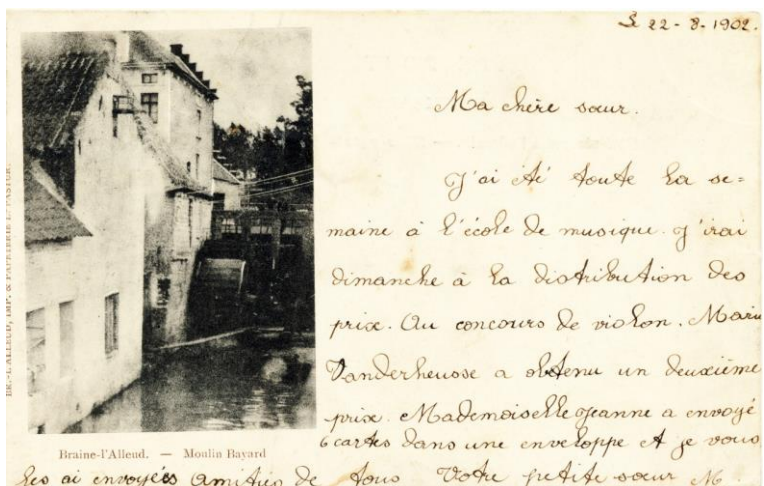 22-8-1902.
Ma chère sœur.
J'ai été toute la se=
maine à l'école de musique. J'irai
dimanche à la distribution des
prix. Au concours de violon. Marie
Vanderheusse a obtenu un deuxième
prix. Mademoiselle Jeanne a envoyé
6 cartes dans une enveloppe et je vous
les ai envoyées amitiés de tous Votre petite sœur M.
Braine-l'Alleud. — Moulin Bayard
BR.-L'ALLEUD, IMP. & PAPETERIE L. PASTUR.